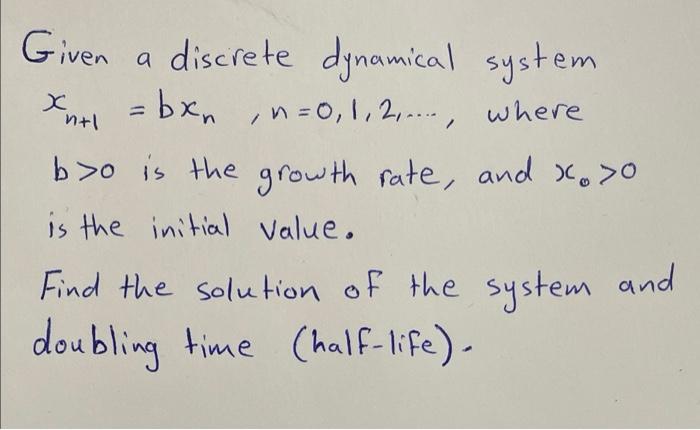 Given a discrete dynamical system
xₙ₊₁ = bxₙ , n=0,1,2,...., where
b>0 is the growth rate, and x₀>0
is the initial value.
Find the solution of the system and
doubling time (half-life).